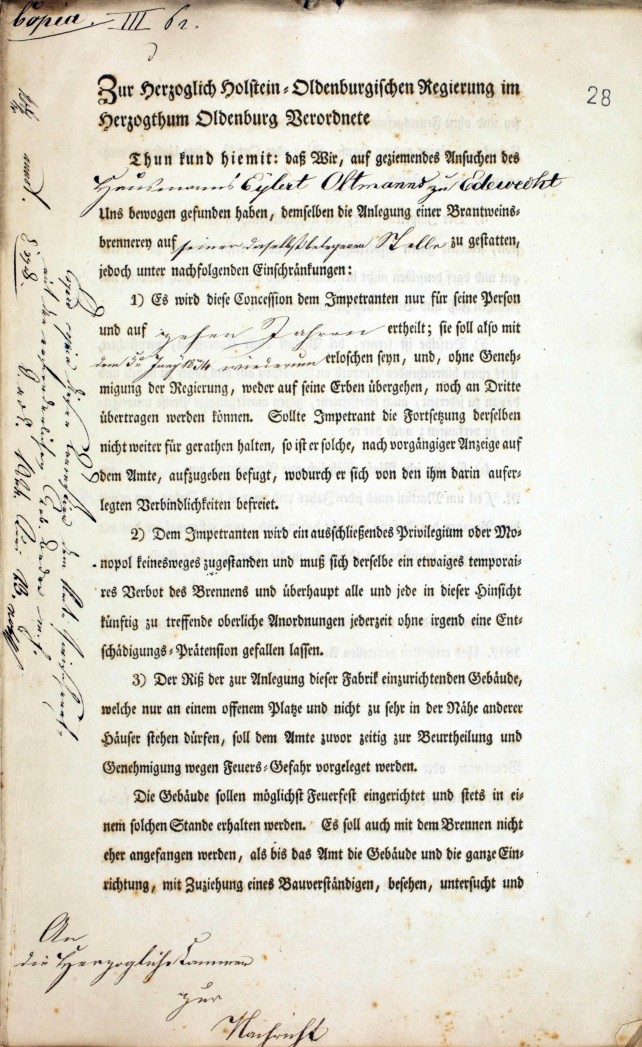 Copia. III 62.
28
Zur Herzoglich Holstein-Oldenburgischen Regierung im
Herzogthum Oldenburg Verordnete
Thun kund hiemit: daß Wir, auf geziemendes Ansuchen des
Hausmanns Eylert Oltmanns zu Edewecht
Uns bewogen gefunden haben, demselben die Anlegung einer Brantweins-
brennerey auf seiner daselbst belegenen Stelle zu gestatten,
jedoch unter nachfolgenden Einschränkungen:
1) Es wird diese Concession dem Impetranten nur für seine Person
und auf zehen Jahren ertheilt; sie soll also mit
dem wiederum erloschen seyn, und, ohne Geneh-
migung der Regierung, weder auf seine Erben übergehen, noch an Dritte
übertragen werden können. Sollte Impetrant die Fortsetzung derselben
nicht weiter für gerathen halten, so ist er solche, nach vorgängiger Anzeige auf
dem Amte, aufzugeben befugt, wodurch er sich von den ihm darin aufer-
legten Verbindlichkeiten befreiet.
2) Dem Impetranten wird ein ausschließendes Privilegium oder Mo-
nopol keinesweges zugestanden und muß sich derselbe ein etwaiges temporai-
res Verbot des Brennens und überhaupt alle und jede in dieser Hinsicht
künftig zu treffende oberliche Anordnungen jederzeit ohne irgend eine Ent-
schädigungs-Prätension gefallen lassen.
3) Der Riß der zur Anlegung dieser Fabrik einzurichtenden Gebäude,
welche nur an einem offenem Platze und nicht zu sehr in der Nähe anderer
Häuser stehen dürfen, soll dem Amte zuvor zeitig zur Beurtheilung und
Genehmigung wegen Feuers-Gefahr vorgeleget werden.
Die Gebäude sollen möglichst Feuerfest eingerichtet und stets in ei-
nem solchen Stande erhalten werden. Es soll auch mit dem Brennen nicht
eher angefangen werden, als bis das Amt die Gebäude und die ganze Ein-
richtung, mit Zuziehung eines Bauverständigen, besehen, untersucht und
An
die Herzogliche Cammer
zur
Nachricht